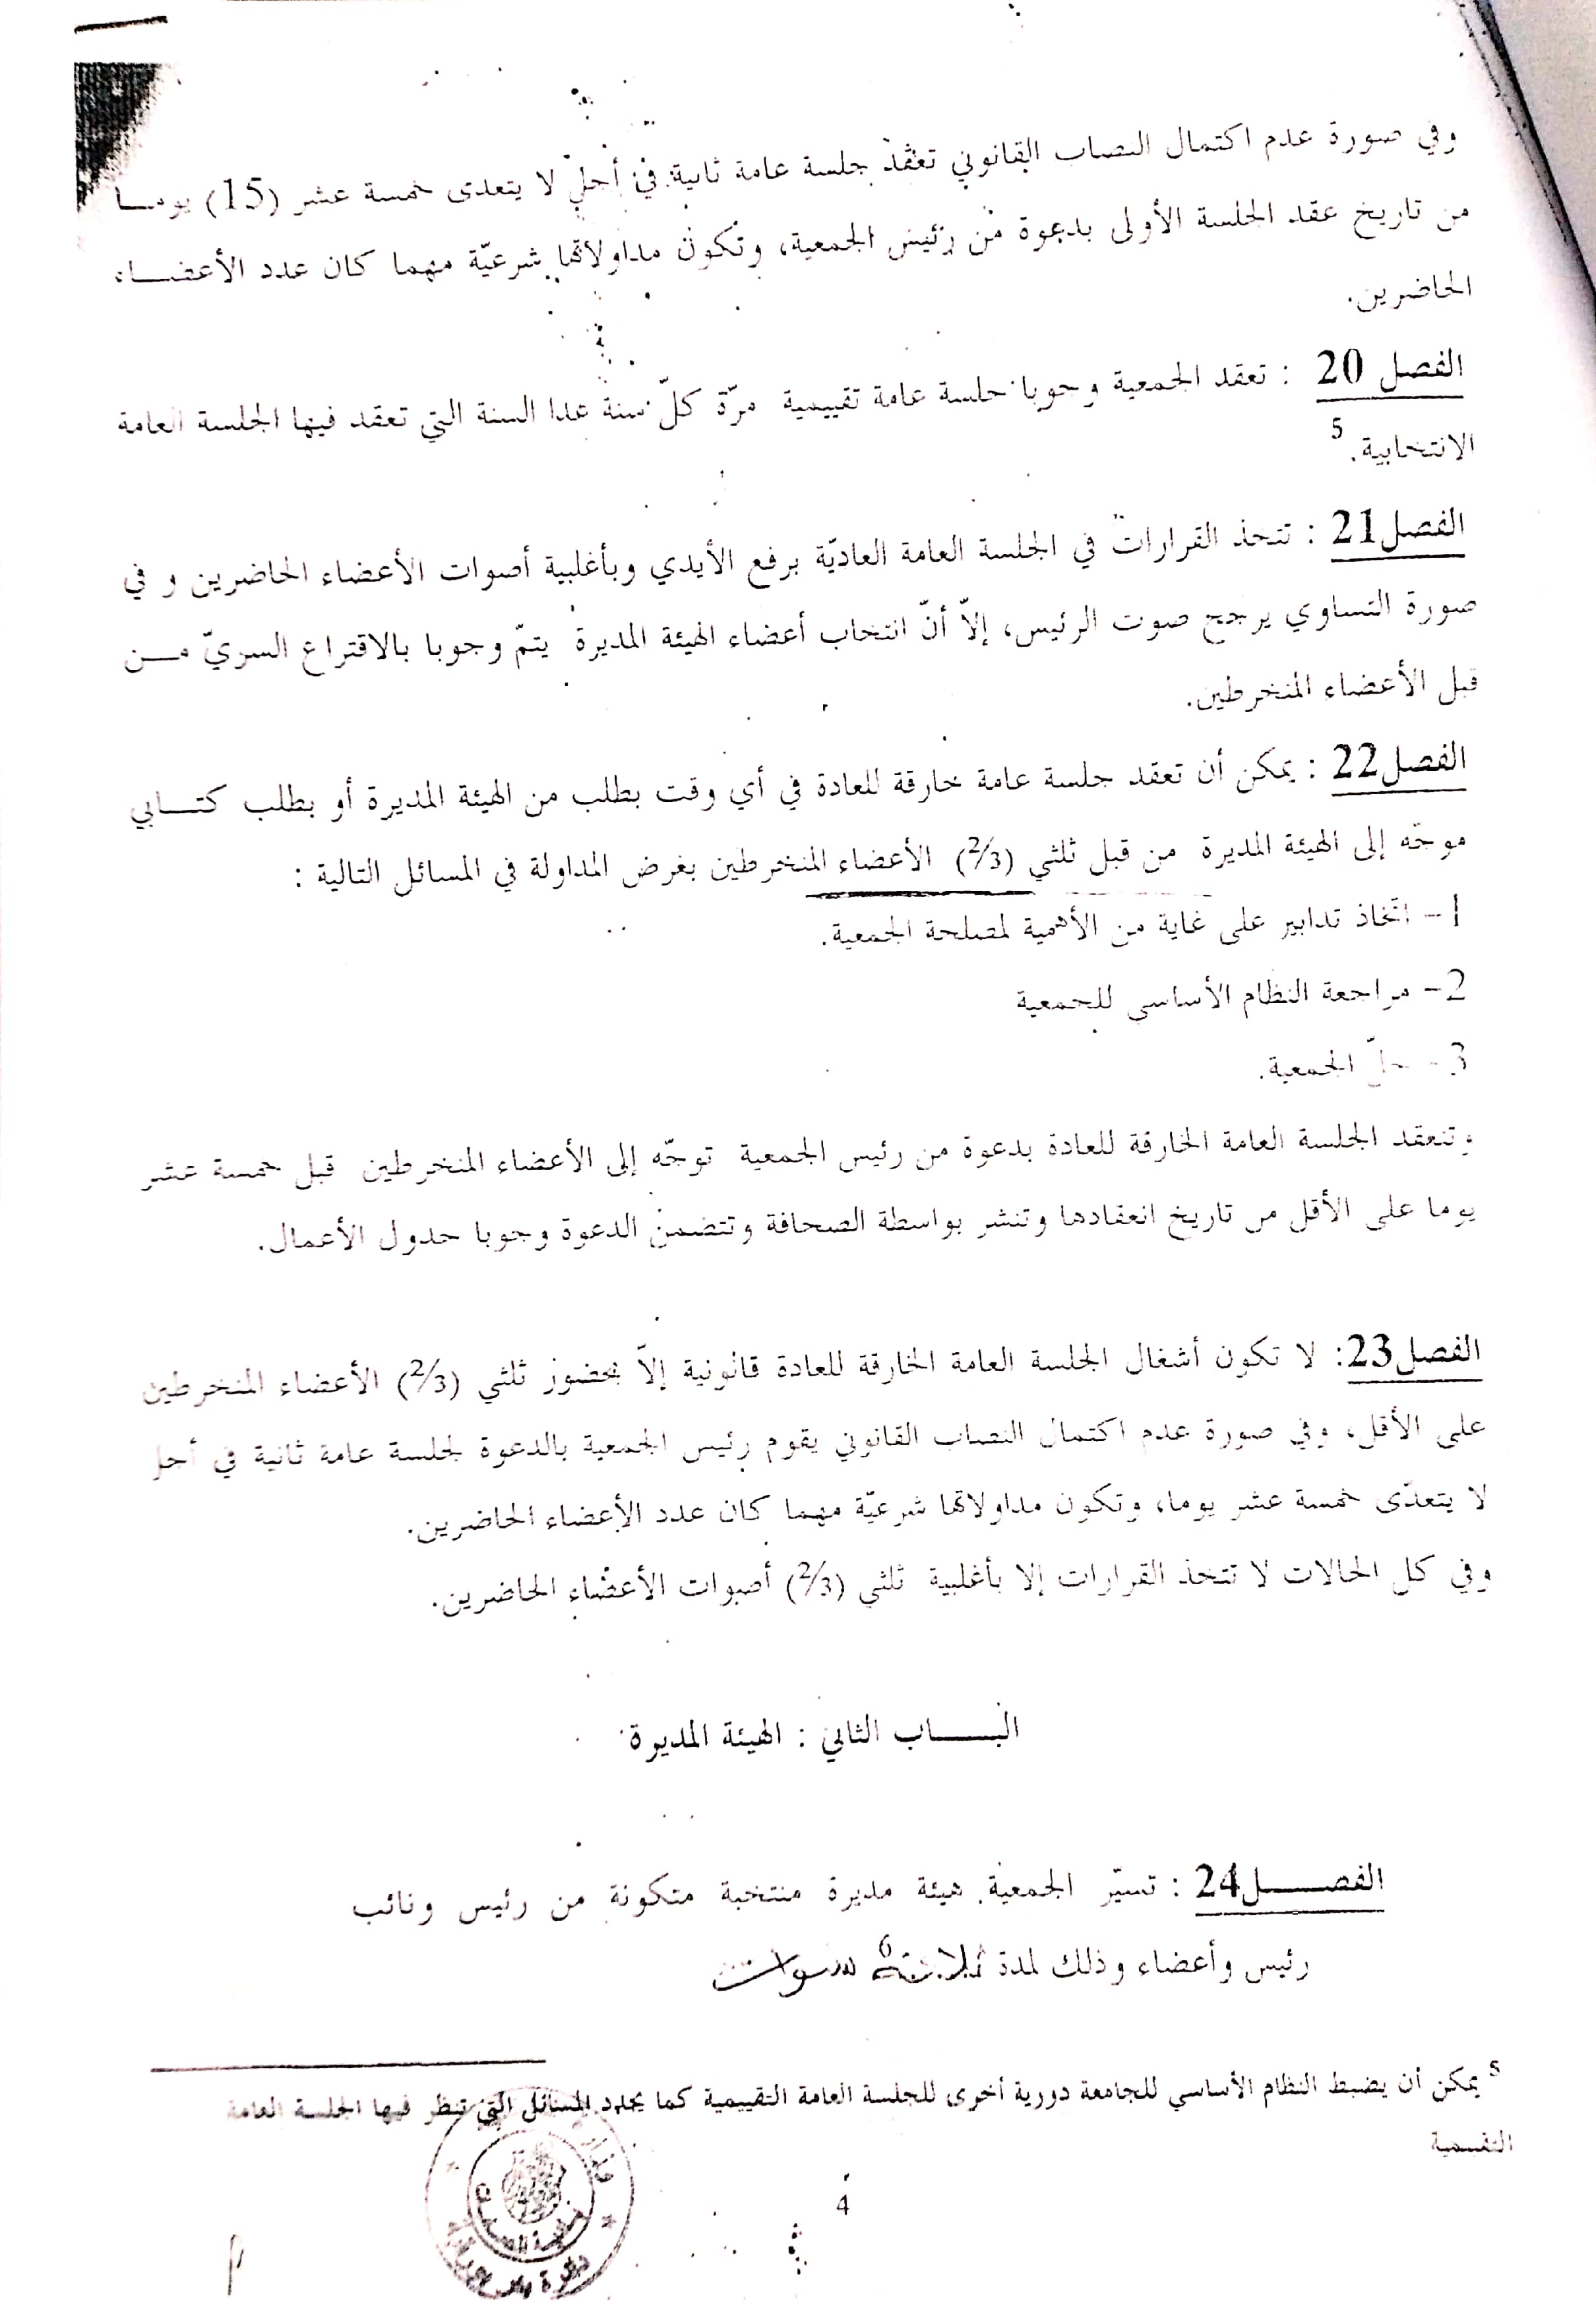 وفي صورة عدم اكتمال النصاب القانوني تعقد جلسة عامة ثانية في أجل لا يتعدى خمسة عشر (15) يومـا
من تاريخ عقد الجلسة الأولى بدعوة من رئيس الجمعية، وتكون مداولاتها شرعيّة مهما كان عدد الأعضـاء
الحاضرين.
الفصل 20 : تعقد الجمعية وجوبا جلسة عامة تقييمية مرّة كلّ سنة عدا السنة التي تعقد فيها الجلسة العامة
الانتخابية. 5
الفصل21 : تتخذ القرارات في الجلسة العامة العاديّة برفع الأيدي وبأغلبية أصوات الأعضاء الحاضرين و في
صورة التساوي يرجح صوت الرئيس، إلاّ أنّ انتخاب أعضاء الهيئة المديرة يتمّ وجوبا بالاقتراع السريّ مـن
قبل الأعضاء المنخرطين.
الفصل22 : يمكن أن تعقد جلسة عامة خارقة للعادة في أي وقت بطلب من الهيئة المديرة أو بطلب كتـابي
موجّه إلى الهيئة المديرة من قبل ثلثي (2/3) الأعضاء المنخرطين بغرض المداولة في المسائل التالية :
1- اتّخاذ تدابير على غاية من الأهمية لمصلحة الجمعية.
2- مراجعة النظام الأساسي للجمعية
3- حلّ الجمعية.
وتنعقد الجلسة العامة الخارقة للعادة بدعوة من رئيس الجمعية توجّه إلى الأعضاء المنخرطين قبل خمسة عشر
يوما على الأقل من تاريخ انعقادها وتنشر بواسطة الصحافة وتتضمن الدعوة وجوبا جدول الأعمال.
الفصل23: لا تكون أشغال الجلسة العامة الخارقة للعادة قانونية إلاّ بحضور ثلثي (2/3) الأعضاء المنخرطين
على الأقل، وفي صورة عدم اكتمال النصاب القانوني يقوم رئيس الجمعية بالدعوة لجلسة عامة ثانية في أجل
لا يتعدّى خمسة عشر يوما، وتكون مداولاتها شرعيّة مهما كان عدد الأعضاء الحاضرين.
وفي كل الحالات لا تتخذ القرارات إلا بأغلبية ثلثي (2/3) أصوات الأعضاء الحاضرين.
البـــاب الثاني : الهيئة المديرة
الفصــــل24 : تسيّر الجمعية هيئة مديرة منتخبة متكونة من رئيس ونائب
رئيس وأعضاء وذلك لمدة ثلاثة سنوات
5 يمكن أن يضبط النظام الأساسي للجامعة دورية أخرى للجلسة العامة التقييمية كما يحدد المسائل التي تنظر فيها الجلسة العامة
التقييمية
4